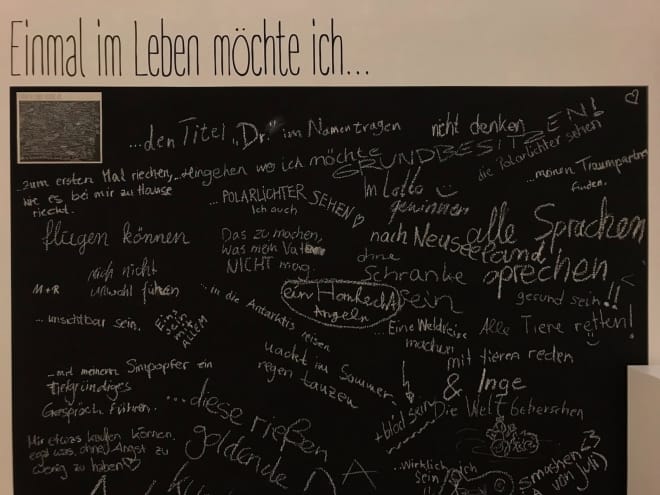 Einmal im Leben möchte ich...
...den Titel „Dr." im Namen tragen
nicht denken
GRUNDBESITZEN!
die Polarlichter sehen
...meinen Traumpartner
finden.
...zum ersten Mal riechen,
wie es bei mir zu Hause
riecht.
...hingehen wo ich möchte
...POLARLICHTER
SEHEN
Ich auch
Im Lotto
gewinnen
fliegen können
Das zu machen,
was mein Vater
NICHT mag.
nach Neuseeland,
alle Sprachen
sprechen
ohne
Schranke
sein
mich nicht
unwohl fühlen
M+R
ein Honkecht
Angeln
gesund sein!!
...unsichtbar sein.
Eins
sein
mit
ALLEM
...in die Antarktis reisen
...Eine Weltreise
machen
Alle Tiere retten!
mit tieren reden
nackt im Sommer
regen tanzen
& Inge
...mit meinem Simpopfer ein
tiefgründiges
Gespräch führen.
...diese rießen
goldende
+ blöd sein
Die Welt beherschen
Mir etwas kaufen können,
egal was, ohne Angst zu
wenig zu haben
...Wirklich
sein
ich
smashen <3
von Juli)